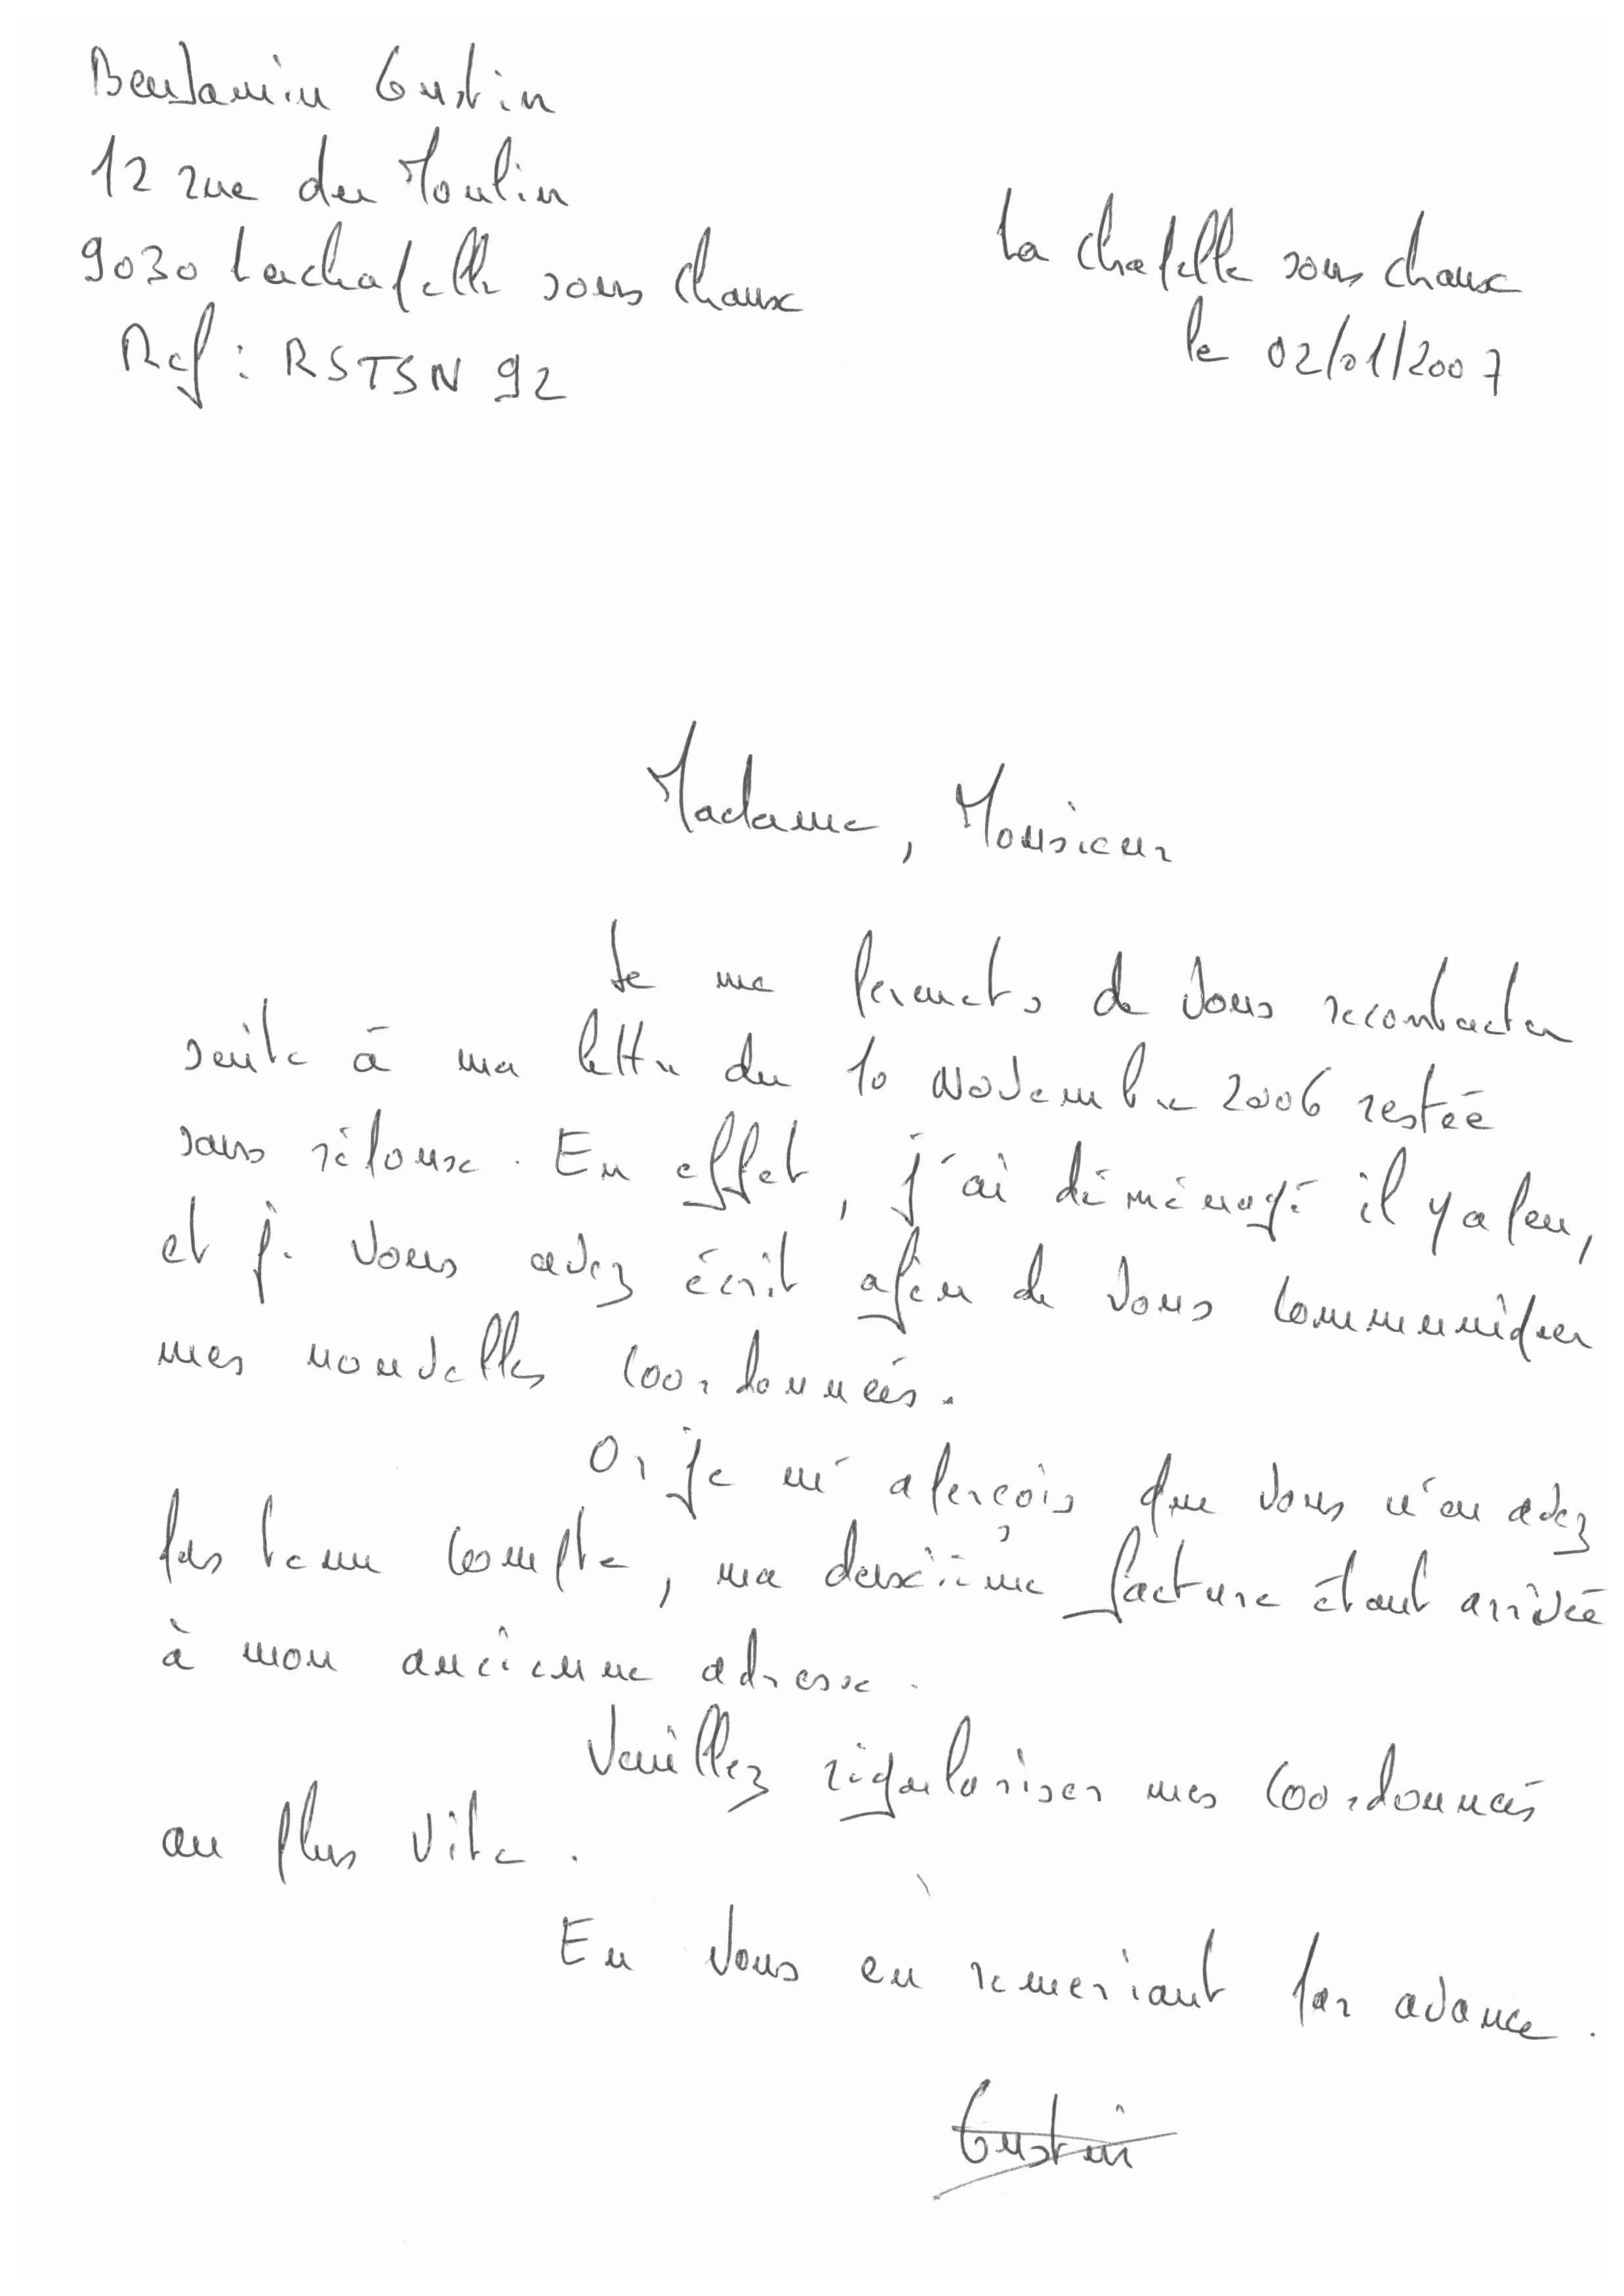 Benjamin Gustin
12 rue du Moulin
9030 Lachapelle sous Chaux
Ref : RSTSN 92
La Chapelle sous chaux
le 02/01/2007
Madame, Monsieur
Je me permets de vous recontacter
suite à ma lettre du 10 Novembre 2006 restée
sans réponse. En effet, j'ai déménagé il y a peu,
et je vous avez écrit afin de vous communiquer
mes nouvelles coordonnées.
Or je m'aperçois que vous n'en avez
pas tenu compte, ma deuxième facture étant arrivée
à mon ancienne adresse.
Veuillez régulariser mes coordonnées
au plus vite.
En vous en remerciant par avance.
Gustin